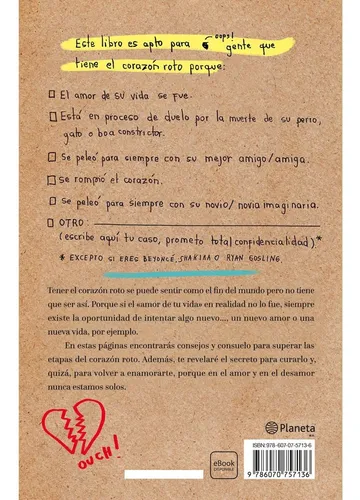 oops!
Este libro es apto para gente que
tiene el corazón roto porque:
El amor de su vida se fue.
Está en proceso de duelo por la muerte de su perro,
gato o boa constrictor.
Se peleó para siempre con su mejor amigo/amiga.
Se rompió el corazón.
Se peleó para siempre con su novio/novia imaginaria.
OTRO:
(escribe aquí tu caso, prometo total confidencialidad)*
* EXCEPTO SI ERES BEYONCÉ, SHAKIRA O RYAN GOSLING.
Tener el corazón roto se puede sentir como el fin del mundo pero no tiene
que ser así. Porque si el «amor de tu vida» en realidad no lo fue, siempre
existe la oportunidad de intentar algo nuevo..., un nuevo amor o una
nueva vida, por ejemplo.
En estas páginas encontrarás consejos y consuelo para superar las
etapas del corazón roto. Además, te revelaré el secreto para curarlo y,
quizá, para volver a enamorarte, porque en el amor y en el desamor
nunca estamos solos.
OUCH!
eBook
DISPONIBLE
Planeta
ISBN: 978-607-07-5713-6
9 786070 757136